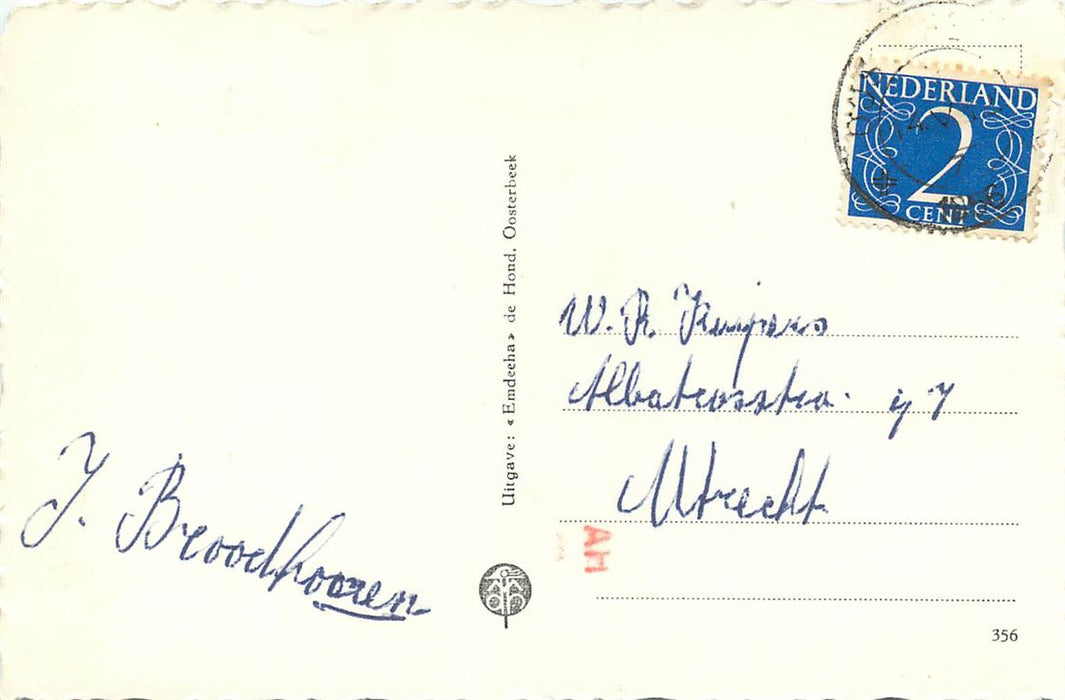 NEDERLAND
2
CENT
1956
Uitgave: «Emdeeha» de Hond, Oosterbeek
W. R. Kuijpers
Albatrosstra.
Utrecht
J. Broodhooren
AM
356